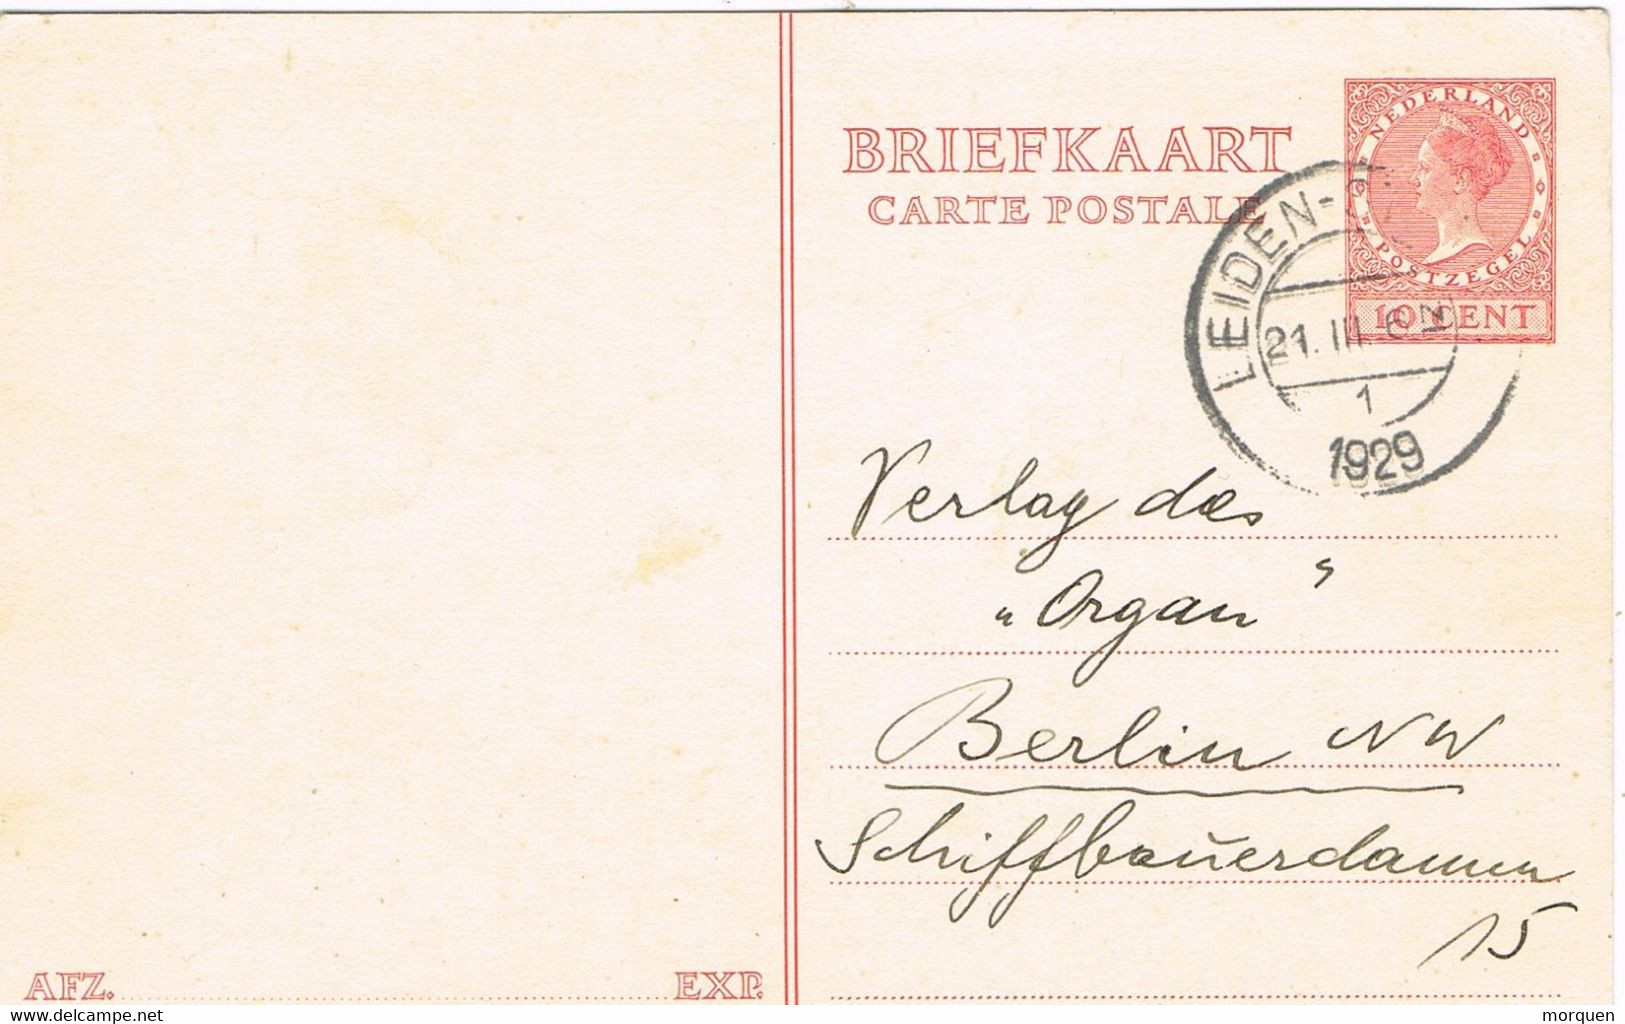 BRIEFKAART
CARTE POSTALE
NEDERLAND
POSTZEGEL
10 CENT
LEIDEN-
21. III. 6 N
1
1929
Verlag des
"Organ"
Berlin NW
Schiffbauerdamm
15
AFZ. EXP.
www.delcampe.net
morquen